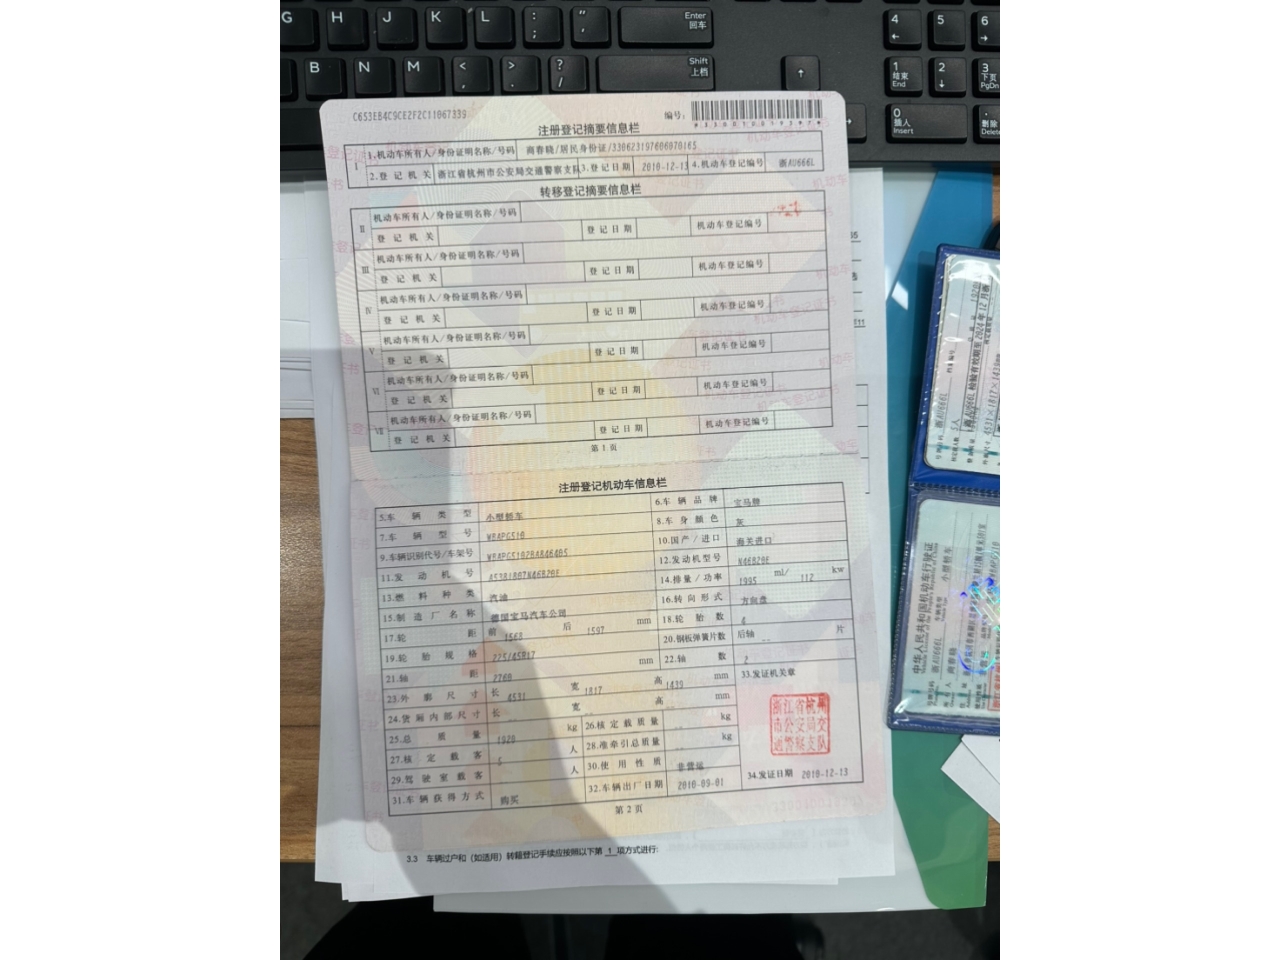 G H J K L : ; " ' Enter 回车 4 ← 5 6 →
B N M < , > . ? / Shift 上档 ↑ 1 结束 End 2 ↓ 3 下页 PgDn
0 插入 Insert 删除 Delete
C653EB4C9CE2F2C11067339 编号:
注册登记摘要信息栏
I 1.机动车所有人/身份证明名称/号码 商春晓/居民身份证/330623197606070165
2.登记机关 浙江省杭州市公安局交通警察支队 3.登记日期 2010-12-13 4.机动车登记编号 浙AU666L
转移登记摘要信息栏
II 机动车所有人/身份证明名称/号码
登记机关 登记日期 机动车登记编号
III 机动车所有人/身份证明名称/号码
登记机关 登记日期 机动车登记编号
IV 机动车所有人/身份证明名称/号码
登记机关 登记日期 机动车登记编号
V 机动车所有人/身份证明名称/号码
登记机关 登记日期 机动车登记编号
VI 机动车所有人/身份证明名称/号码
登记机关 登记日期 机动车登记编号
VII 机动车所有人/身份证明名称/号码
登记机关 登记日期 机动车登记编号
第1页
注册登记机动车信息栏
5.车辆类型 小型轿车 6.车辆品牌 宝马牌
7.车辆型号 WBAPG510 8.车身颜色 灰
9.车辆识别代号/车架号 10.国产/进口 海关进口
11.发动机号 12.发动机型号 N46B20E
13.燃料种类 汽油 14.排量/功率 1995 ml/ 112 kw
15.制造厂名称 德国宝马汽车公司 16.转向形式 方向盘
17.轮距 前 1563 后 1597 mm 18.轮胎数 4
19.轮胎规格 225/45R17 20.钢板弹簧片数 后轴 -- 片
21.轴距 2760 mm 22.轴数 2
23.外廓尺寸 长 4531 宽 1817 高 1439 mm 33.发证机关章
24.货厢内部尺寸 长 -- 宽 -- 高 -- mm
25.总质量 1920 kg 26.核定载质量 -- kg
27.核定载客 5 人 28.准牵引总质量 -- kg
29.驾驶室载客 -- 人 30.使用性质 非营运
31.车辆获得方式 购买 32.车辆出厂日期 2010-09-01 34.发证日期 2010-12-13
浙江省杭州
市公安局交
通警察支队
第2页
3.3 车辆过户和(如适用)转籍登记手续应按照以下第 1 项方式进行:
浙AU666L
5人
浙AU666L 检验有效期至2024年12月浙
4531×1817×1439
中华人民共和国机动车行驶证
浙AU666L 小型轿车
商春晓